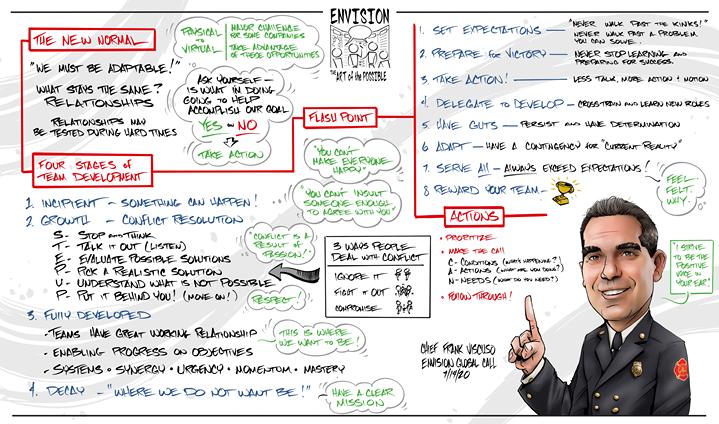 THE NEW NORMAL
"WE MUST BE ADAPTABLE!"
WHAT STAYS THE SAME?
RELATIONSHIPS
RELATIONSHIPS MAY
BE TESTED DURING HARD TIMES
PHYSICAL
to
VIRTUAL
MAJOR CHALLENGE
FOR SOME COMPANIES
TAKE ADVANTAGE
OF THESE OPPORTUNITIES
ASK YOURSELF -
IS WHAT IN DOING
GOING TO HELP
ACCOMPLISH OUR GOAL
YES or NO
TAKE ACTION
ENVISION
THE ART of the POSSIBLE
FLASH POINT
1. SET EXPECTATIONS - "NEVER WALK PAST THE KINKS!"
NEVER WALK PAST A PROBLEM
YOU CAN SOLVE.
2. PREPARE for VICTORY - NEVER STOP LEARNING and
PREPARING FOR SUCCESS.
3. TAKE ACTION! - LESS TALK, MORE ACTION & MOTION
4. DELEGATE to DEVELOP - CROSSTRAIN and LEARN NEW ROLES
5. HAVE GUTS - PERSIST and HAVE DETERMINATION
6. ADAPT - HAVE A CONTINGENCY for "CURRENT REALITY"
7. SERVE All - ALWAYS EXCEED EXPECTATIONS!
8 REWARD YOUR TEAM -
FEEL.
FELT.
WHY.
ACTIONS
• PRIORITIZE
• MAKE THE CALL
C - CONDITIONS (WHAT'S HAPPENING?)
A - ACTIONS (WHAT ARE YOU DOING?)
N - NEEDS (WHAT DO YOU NEED?)
• FOLLOW THROUGH!
"I STRIVE
TO BE THE
POSITIVE
VOICE IN
YOUR EAR!"
CHIEF FRANK VISCUSO
ENVISION GLOBAL CALL
7/19/20
FOUR STAGES of
TEAM DEVELOPMENT
1. INCIPIENT - SOMETHING CAN HAPPEN!
2. GROWTH - CONFLICT RESOLUTION
S- STOP and THINK
T- TALK IT OUT (LISTEN)
E- EVALUATE POSSIBLE SOLUTIONS
P- PICK A REALISTIC SOLUTION
U- UNDERSTAND WHAT IS NOT POSSIBLE
P- PUT IT BEHIND YOU! (MOVE ON!)
3. FULLY DEVELOPED
• TEAMS HAVE GREAT WORKING RELATIONSHIP
• ENABLING PROGRESS ON OBJECTIVES
• SYSTEMS • SYNERGY • URGENCY • MOMENTUM • MASTERY
4. DECAY - "WHERE WE DO NOT WANT BE!"
"YOU CAN'T
MAKE EVERYONE
HAPPY"
"YOU CAN'T INSULT
SOMEONE ENOUGH
TO AGREE WITH YOU"
"CONFLICT IS A
RESULT OF
PASSION!"
RESPECT!
THIS IS WHERE
WE WANT TO BE!
HAVE A CLEAR
MISSION
3 WAYS PEOPLE
DEAL WITH CONFLICT
IGNORE IT
FIGHT IT OUT
COMPROMISE